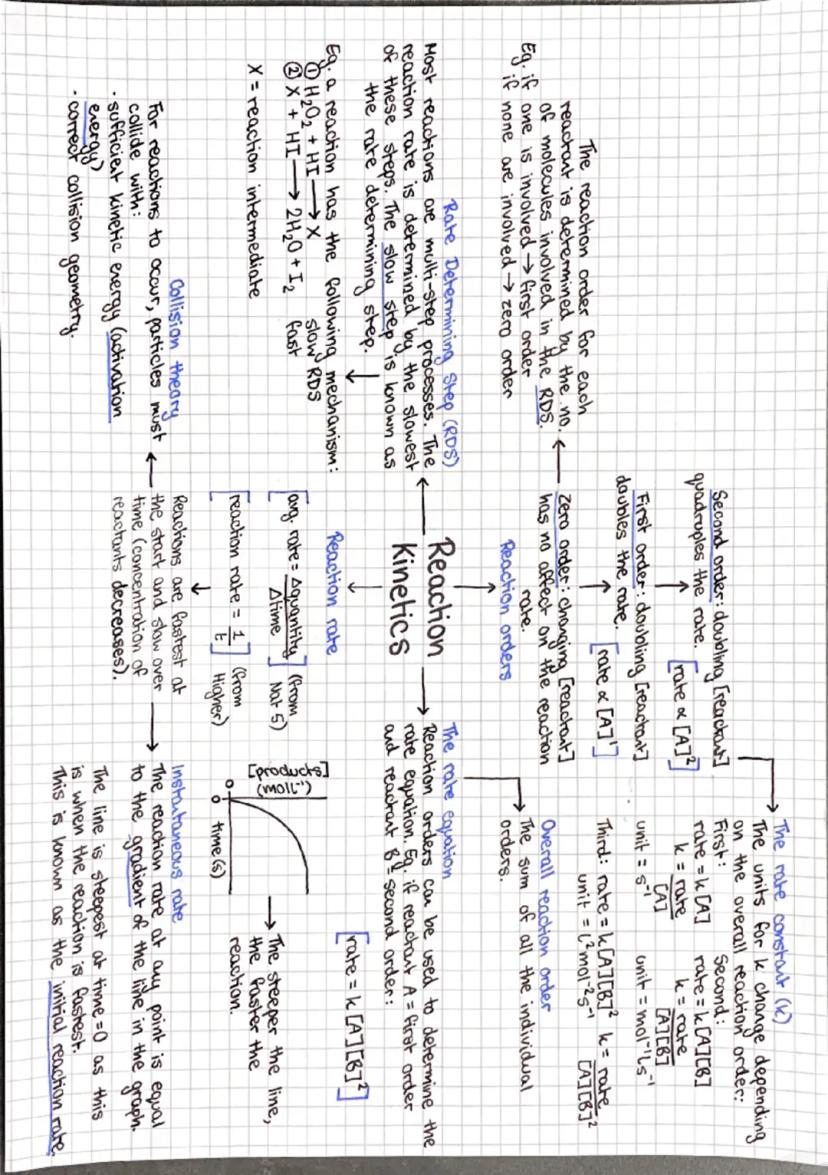 Reaction
Kinetics
Reaction orders
Zero order: changing [reactant]
has no affect on the reaction
rate.
First order: doubling [reactant]
doubles the rate.
[rate ∝ [A]¹]
Second order: doubling [reactant]
quadruples the rate.
[rate ∝ [A]²]
The reaction order for each
reactant is determined by the no.
of molecules involved in the RDS.
Eg. if one is involved → first order
if none are involved → zero order
Rate Determining Step (RDS)
Most reactions are multi-step processes. The
reaction rate is determined by the slowest
of these steps. The slow step is known as
the rate determining step.
Eg. a reaction has the following mechanism:
① H₂O₂ + HI → X slow RDS
② X + HI → 2H₂O + I₂ fast
X = reaction intermediate
Reaction rate
[avg. rate = Δquantity / Δtime] (from
Nat 5)
[reaction rate = 1/t] (from
Higher)
Reactions are fastest at
the start and slow over
time (concentration of
reactants decreases).
Collision theory
For reactions to occur, particles must
collide with:
· sufficient kinetic energy (activation
energy)
· correct collision geometry.
The rate constant (k)
The units for k change depending
on the overall reaction order:
First: Second:
rate = k[A] rate = k[A][B]
k = rate / [A] k = rate / [A][B]
unit = s⁻¹ unit = mol⁻¹ l s⁻¹
Third: rate = k[A][B]² k = rate / [A][B]²
unit = l² mol⁻² s⁻¹
Overall reaction order
The sum of all the individual
orders.
The rate equation
Reaction orders can be used to determine the
rate equation. Eg. if reactant A = first order
and reactant B = second order:
[rate = k [A][B]²]
[products]
(mol l⁻¹)
0
0 time (s)
The steeper the line,
the faster the
reaction.
Instantaneous rate
The reaction rate at any point is equal
to the gradient of the line in the graph.
The line is steepest at time = 0 as this
is when the reaction is fastest.
This is known as the initial reaction rate.